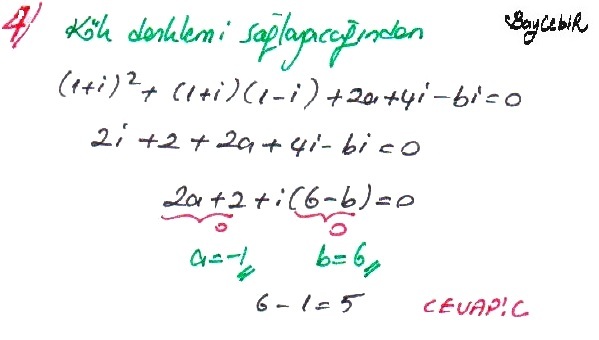 4/ Kök denklemi sağlayacağından
SayCebir
(1+i)² + (1+i)(1-i) + 2a + 4i - bi = 0
2i + 2 + 2a + 4i - bi = 0
2a + 2 + i(6-b) = 0
0 0
a = -1 b = 6
6 - 1 = 5 CEVAP: C